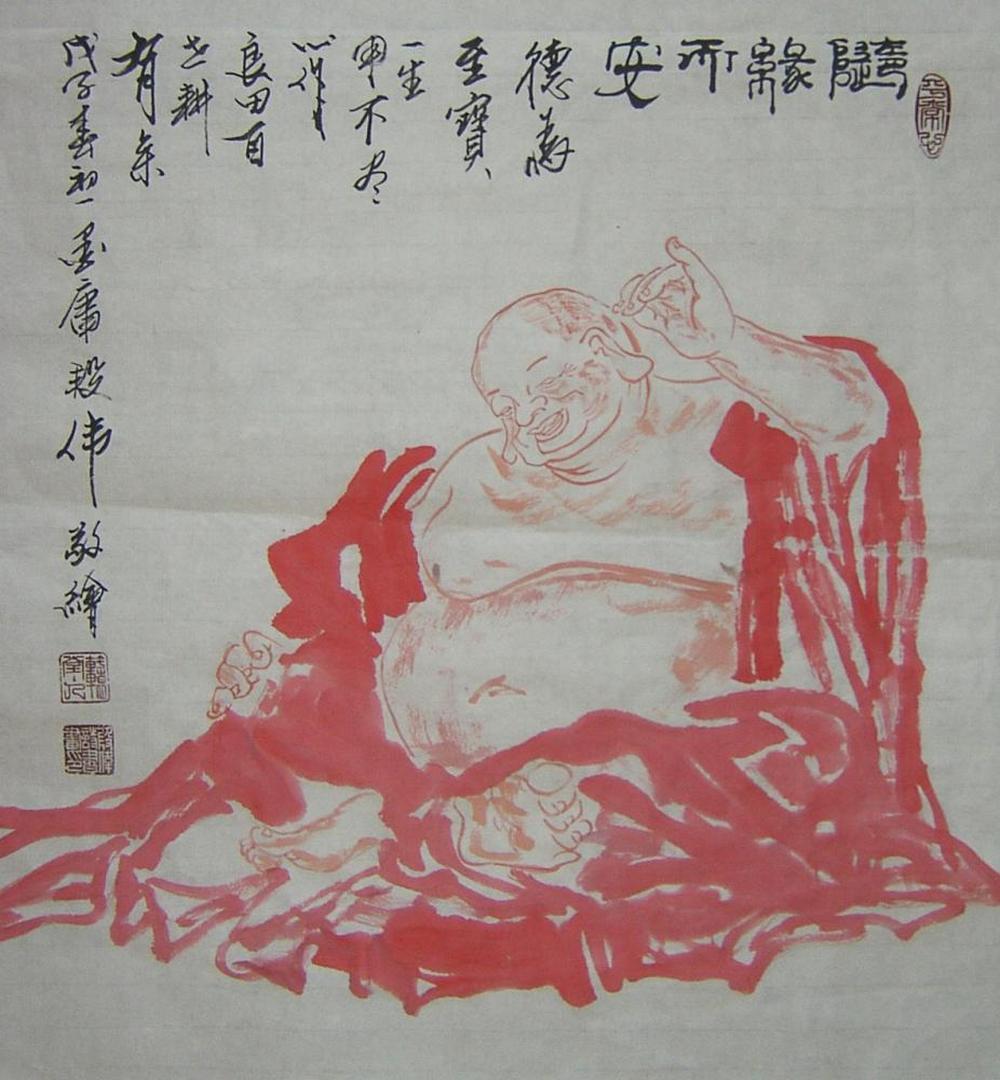 隨緣所安
德為
至寶
一生
用不盡
心作
良田百
世耕
有余
戊子春初一墨庸段伟敬繪
平常心